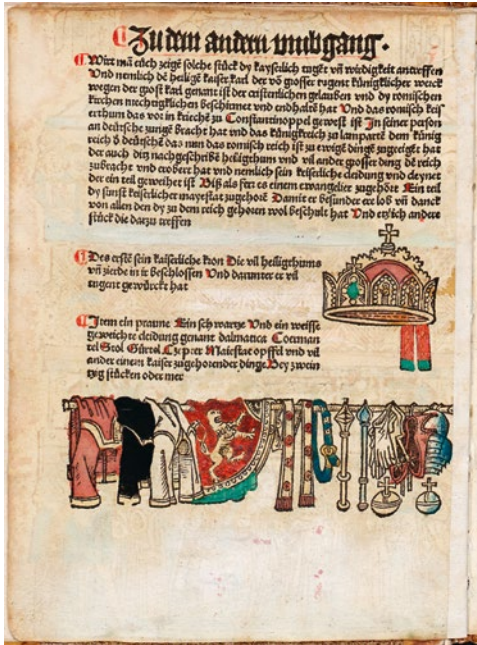 Zu dem andern vmbgang.
Wirt mā eūch zeigē solche stūck dy kayserlich tugēt vn̄ wirdigkeit antreffen
Vnd nemlich dē heiligē kaiser karl der vō grosser tugent künigklicher werck
wegen der grost karl genant ist der cristenlichen gelauben vnd dy romischen
kirchen mechtigklichen beschirmet vnd enthaltē hat Vnd das romisch keis
erthum das vor in kriechē zu Constantinoppel gewest ist In seiner person
an deūtsche zungē bracht hat vnd das kūnigkreich zu lampartē dem kūnig
reich d̄ deūtschē das nun das romisch reich ist zu ewigē dingē zugeeigēt hat
der auch ditz nachgeschribē heiligthum vnd vil ander grosser ding dē reich
zubracht vnd erobert hat vnd nemlich sein keiserliche cleidung vnd cleynet
der ein teil geweihet ist Biß als ferr es einem ewangelier zugehört Ein teil
dy sunst keiserlicher mayestat zugehort Damit er besunder ere lob vn̄ danck
von allen den dy zu dem reich gehoren wol beschult hat Vnd etzlich andere
stūck die darzu treffen
Des erstē sein kaiserliche kron Die vil heiligthums
vn̄ zierde in ir beschlossen Vnd darunter er vil
tugent gewūrckt hat
Item ein praune Ein schwartze Vnd ein weisse
geweichte cleidung genant dalmatica Coerman
tel Stol Gūrtel Czepter Maiestat opffel vnd vil
ander einem kaiser zugehorender dinge Bey zwein
tzig stūcken oder mer